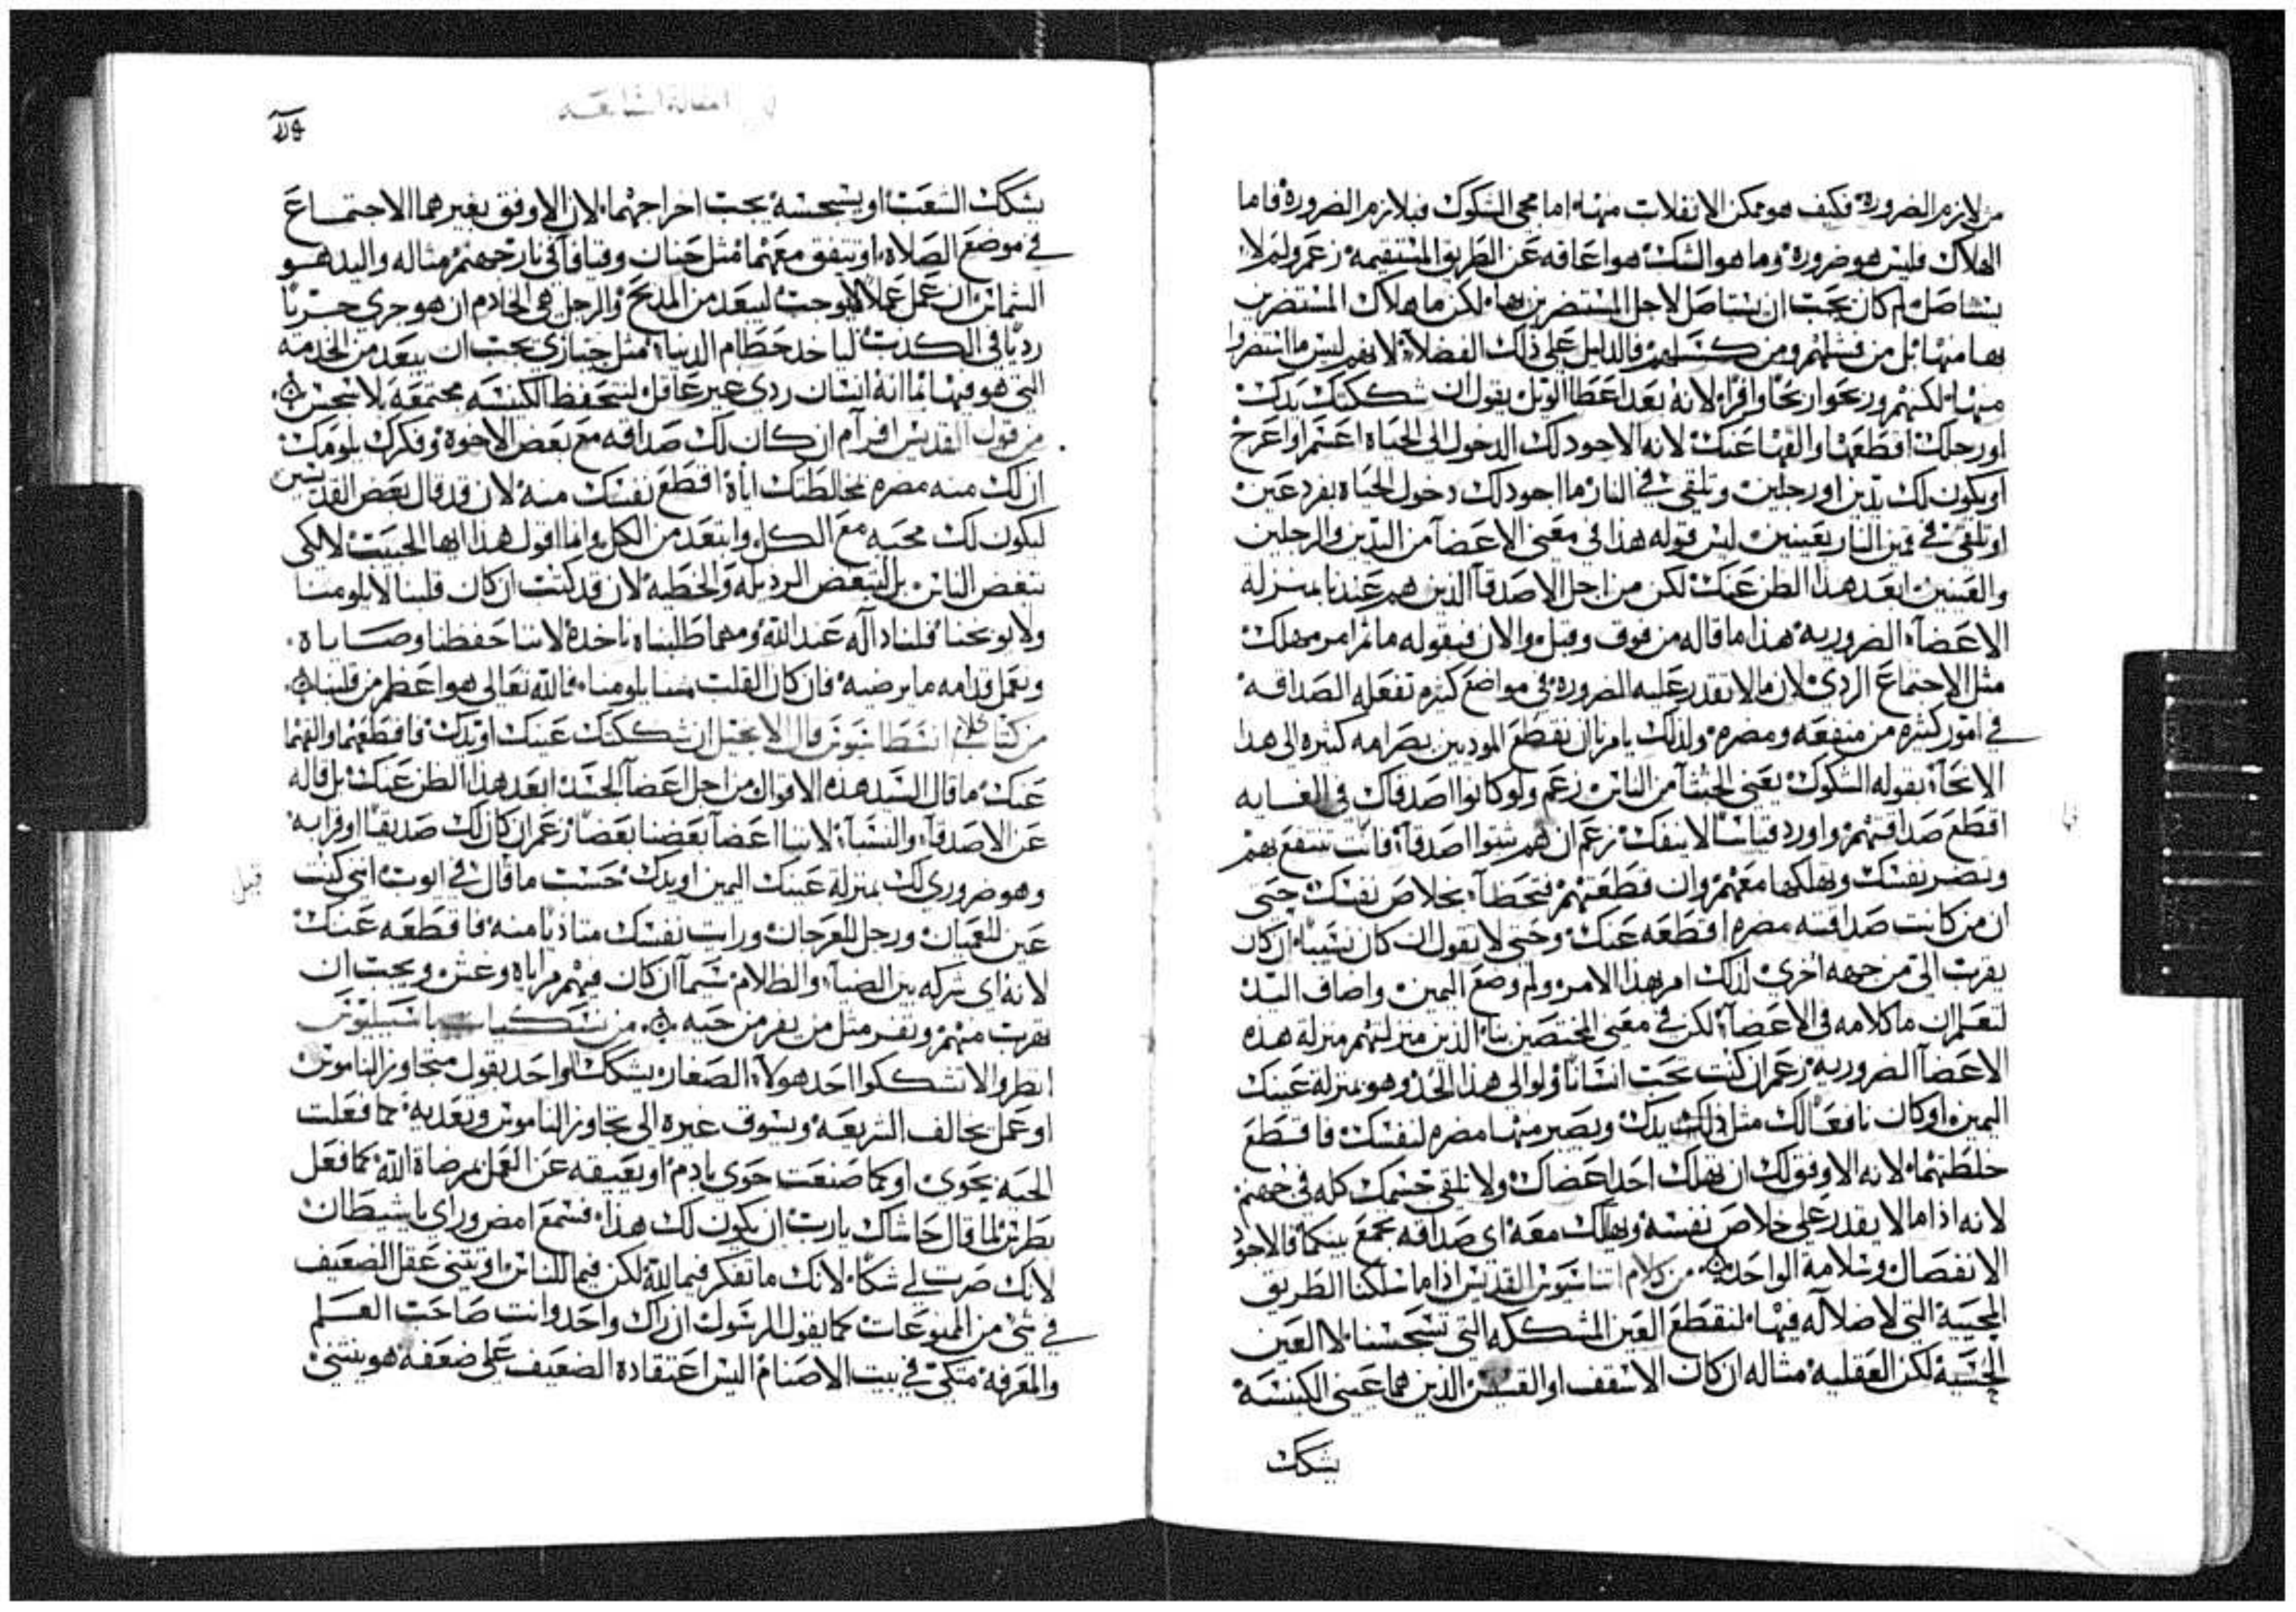 من لازم الضرورة فكيف هو ممكن الانفلات منها اما مجى الشكوك فبلازم الضرورة فاما
الهلاك فليس هو ضرورة وما هو الشك هو اعاقه عن الطريق المستقيمه زعم ولم لا
يستاصل لم كان يجب ان يستاصل لاجل المستضرين بها لكن ما هلاك المستضرين
بها منها بل من فشلهم ومن كسلهم والدليل على ذلك الفضلا لانهم ليس ما استضروا
منها لكنهم وربحوا ربحا وافرا لانه بعد اعطا الويل يقول ان شككتك يدك
او رجلك اقطعها والقها عنك لانه الاجود لك الدخول الى الحياه اعسم او اعرج
او يكون لك يدين او رجلين وتلقى في النار ما اجود لك دخول الحياه بفرد عين
او تلقى في قمين النار بعينين ليس قوله هذا في معنى الاعضآ من اليدين والرجلين
والعينين ابعد هذا الظن عنك لكن من اجل الاصدقآ الذين هم عندنا بمنزله
الاعضآء الضروريه هذا ما قاله من فوق وقبل والان فيقوله ما ثم امر مهلك
مثل الاجتماع الردي لان ما لا يقدر عليه الضروره في مواضع كثيره تفعله الصداقه
في امور كثيره من منفعه ومضره ولذلك يامرنا ان نقطع الموديين بصرامه كثيره الى هذا
الانحآء بقوله الشكوك يعني الخبثآ من الناس زعم ولو كانوا اصدقاك في الغايه
اقطع صداقتهم واورد قياسا لا ينفك زعم ان هم ثبتوا اصدقآء فانت تنتفع بهم
وتضر نفسك وتهلكها معهم وان قطعتهم فتحظآ بخلاص نفسك حتى
ان من كانت صداقته مضره اقطعه عنك وحتى لا تقول ان كان نسيبا ان كان
يقرب الي من جهه اخرى لذلك امر بهذا الامر ولم وضع اليمين واضاف اليد
لتعلم ان ما كلامه في الاعضآء لكن في معنى المختصين بنا الذين منزلتهم منزلة هذه
الاعضآ الضروريه زعم ان كنت تحب انسانا ولو الى هذا الحد وهو بمنزلة عينك
اليمين او كان نافعا لك مثل ذلك يدك ويصير منهما مضره لنفسك فاقطع
خلطتهما لانه الاوفق لك ان تهلك احد اعضاك ولا تلقى جسمك كله في جهنم
لانه اذا ما لا يقدر على خلاص نفسه ويهلك معه اي صداقه تجمع بينكما فالاجود
الانفصال وسلامة الواحد من كلام اثناسيوس القديس اذا ما سلكنا الطريق
المحييه التي لا ضلاله فيها لنقطع العين المشككه التي تسجسنا لا العين
الحسيه لكن العقليه مثاله ان كان الاسقف او القسيس الذين هما عيني الكنيسه
يشكك
المقالة السابعه
يشكك الشعب او يسجسه يجب اخراجهما لان الاوفق بغيرهما الاجتماع
في موضع الصلاه او تتفق معهما مثل حنان وقيافآ في نار جهنم مثاله واليد هو
الشماس ان عمل عملا لا يوجب ليبعد من المذبح والرجل هي الخادم ان هو جرى جريا
رديا في الكذب لياخذ حطام الدنيا مثل جيازي يجب ان يبعد من الخدمه
التي هو فيها بما انه انسان ردي غير عاقل لتحفظ الكنيسه مجتمعه بلا سجس
من قول القديس افرآم ان كان لك صداقه مع بعض الاخوة وفكرك يلومك
ان لك منه مضره بمخالطتك اياه اقطع نفسك منه لان قد قال بعض القديسين
ليكون لك محبه مع الكل وابتعد من الكل وانما اقول هذا ايها الحبيب لا لكي
نبغض الناس بل لنبغض الرذيله والخطيه لان قد كتب ان كان قلبنا لا يلومنا
ولا يوبخنا فلنا دآله عند الله ومهما طلبناه ناخذه لاننا حفظنا وصاياه
ونعمل قدامه ما يرضيه فان كان القلب منا يلومنا فالله تعالى هو اعظم من قلبنا
من كتاب انسطاسيوس قال الانجيل ان شككتك عينك او يدك فاقطعهما والقهما
عنك ما قال السيد هذه الاقوال من اجل اعضآ الجسد ابعد هذا الظن عنك بل قاله
عن الاصدقآء والنسبآء لاننا اعضآ بعضنا بعضا زعم ان كان لك صديقا او قرابه
وهو ضروري لك بمنزلة عينك اليمين او يدك حسب ما قال في ايوب انى كنت
عين للعميان ورجل للعرجان ورايت نفسك متاذيا منه فاقطعه عنك
لانه اي شركه بين الضيآء والظلام سيما ان كان فيهم مراياة وغش ويجب ان
تهرب منهم وتفر مثل من يفر من حيه من نسكيات باسيليوس
انظروا لا تشككوا احد هولآء الصغار يشكك الواحد بقول متجاوز الناموس
او عمل يخالف الشريعه ويسوق غيره الى تجاوز الناموس وتعديه كما فعلت
الحيه بحوى او كما صنعت حوى بادم او يعيقه عن العمل بمرضاة الله كما فعل
بطرس لما قال حاشاك يارب ان يكون لك هذا فسمع امض وراى يا شيطان
لانك صرت لي شكا لانك ما تفكر فيما لله لكن فيما للناس او يثني عقل الضعيف
في شى من الممنوعات كما يقول الرسول ان راك واحد وانت صاحب العلم
والمعرفه متكى في بيت الاصنام اليس اعتقاده الضعيف على ضعفه هو ينثني